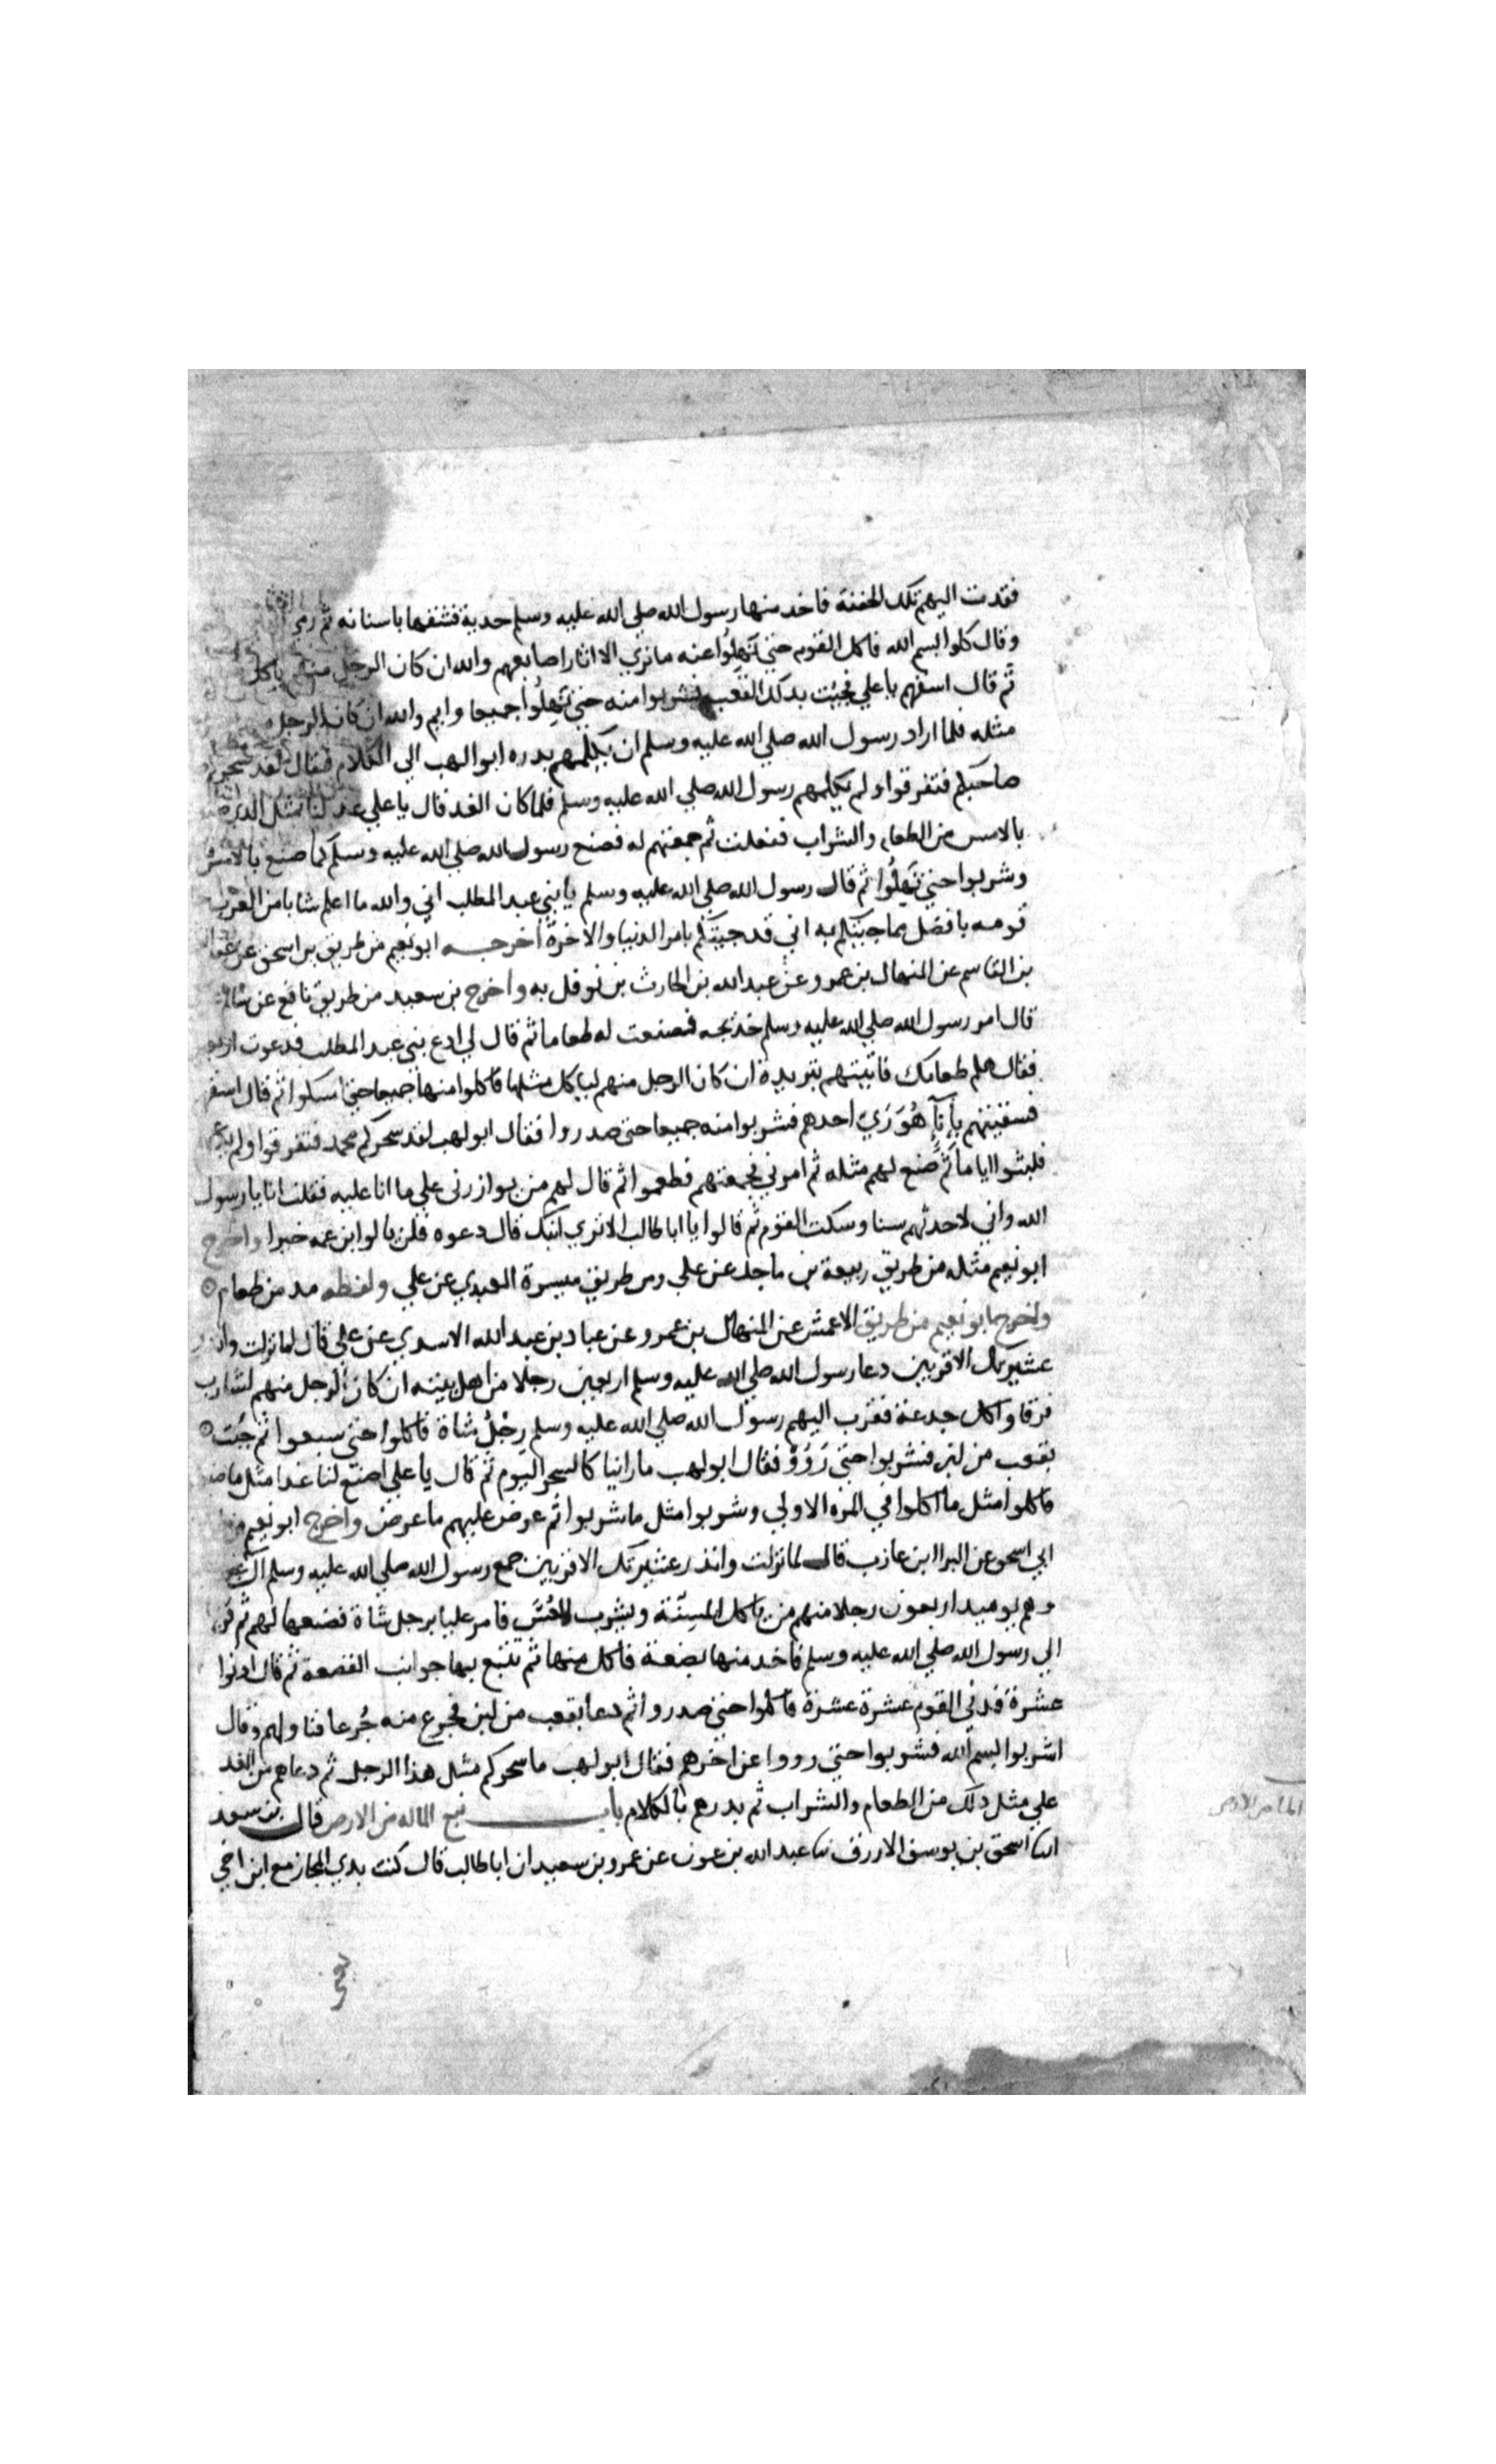 فقدمت اليهم تلك الجفنة فاخد منها رسول الله صلي الله عليه وسلم حدية فشقها باسنانه ثم رمي
وقال كلوا بسم الله فاكل القوم حتي نَهِلُوا عنه مانري الا اثار اصابعهم والله ان كان الرجل منهم ياكل
ثم قال اسقهم ياعلي فجئت بدلك القعب فشربوا منه حتي نَهِلُوا جميعا وايم والله ان كان الرجل
مثله فلما اراد رسول الله صلي الله عليه وسلم ان يكلمهم بدره ابوالهب الي الكلام فقال لقد سحركم
صاحبكم فتفرقوا ولم يكلمهم رسول الله صلي الله عليه وسلم فلما كان الغد قال ياعلي عد لنا بمثل الذي
بالامس من الطعام والشراب ففعلت ثم جمعتهم له فصنع رسول الله صلي الله عليه وسلم كما صنع بالامس
وشربوا حتي نَهِلُوا ثم قال رسول الله صلي الله عليه وسلم يابني عبد المطلب اني والله ما اعلم شابا من العرب
قومه بافضل مما جيتكم به اني قد جيتكم بامر الدنيا والاخرة اخرجه ابونعيم من طريق بن اسحق عن
بن القاسم عن المنهال بن عمرو عن عبد الله بن الحارث بن نوفل به واخرج بن سعيد من طريق نافع عن سالم
قال امر رسول الله صلي الله عليه وسلم خديجه فصنعت له طعاما ثم قال لي ادع بني عبد المطلب فدعوت
فقال هلم طعامك فاتيتهم بثريدة ان كان الرجل منهم لياكل مثلها فاكلوا منها جميعا حتي امسكوا ثم قال
فسقيتهم بإناءٍ هُوَ رَيّ احدهم فشربوا منه جميعا حتي صدروا فقال ابولهب لقد سحركم محمد فتفرقوا ولم
فلبثوا اياما ثم صنع لهم مثله ثم امرني فجمعتهم فطعموا ثم قال لهم من يوازرني علي ما انا عليه فقلت انا يا رسول
الله واني لاحدثهم سنا وسكت القوم ثم قالوا يا ابا طالب الا تري ابنك قال دعوه فلن يالوا ابن عمه خيرا واخرج
ابونعيم مثله من طريق ربيعة بن ماجد عن علي ومن طريق ميسرة العبدي عن علي ولفظه مد من طعام
واخرج ابونعيم من طريق الاعمش عن المنهال بن عمرو عن عباد بن عبد الله الاسدي عن علي قال لما نزلت وانذر
عشيرتك الاقربين دعا رسول الله صلي الله عليه وسلم اربعين رجلا من اهل بيته ان كان الرجل منهم لشارب
فرقا واكل جدعة فقرب اليهم رسول الله صلي الله عليه وسلم رِجْلُ شاة فاكلوا حتي شبعوا ثم جئت
بقعب من لبن فشربوا حتي رَوُوْ فقال ابولهب ما راينا كالسحر اليوم ثم قال يا علي اصنع لنا غدا مثل ما
فاكلوا مثل ما اكلوا في المره الاولي وشربوا مثل ماشربوا ثم عرض عليهم ماعرض واخرج ابونعيم
ابي اسحق عن البرا ابن عازب قال لما نزلت وانذر عشيرتك الاقربين جمع رسول الله صلي الله عليه وسلم
وهم يوميد اربعون رجلا منهم من ياكل المسِنّة ويشرب العُسَّ فامر عليا برجل شاة فصنعها لهم ثم
الي رسول الله صلي الله عليه وسلم فاخد منها بضعة فاكل منها ثم تتبع بها جوانب القصعة ثم قال ادنوا
عشرة فدني القوم عشرة عشرة فاكلوا حتي صدروا ثم دعا بقعب من لبن فجرع منه جُرعا فناولهم وقال
اشربوا بسم الله فشربوا حتي رووا عن اخرهم فقال ابولهب ما سحركم مثل هذا الرجل ثم دعاهم من الغد
علي مثل دلك من الطعام والشراب ثم بدرهم بالكلام باب نبع الماله من الارض قال بن سعد
انبا اسحق بن يوسف الازرق ثنا عبد الله بن عون عن عمرو بن سعيد ان اباطالب قال كنت بدي المجاز مع ابن اخي
الما من الارض
يعني